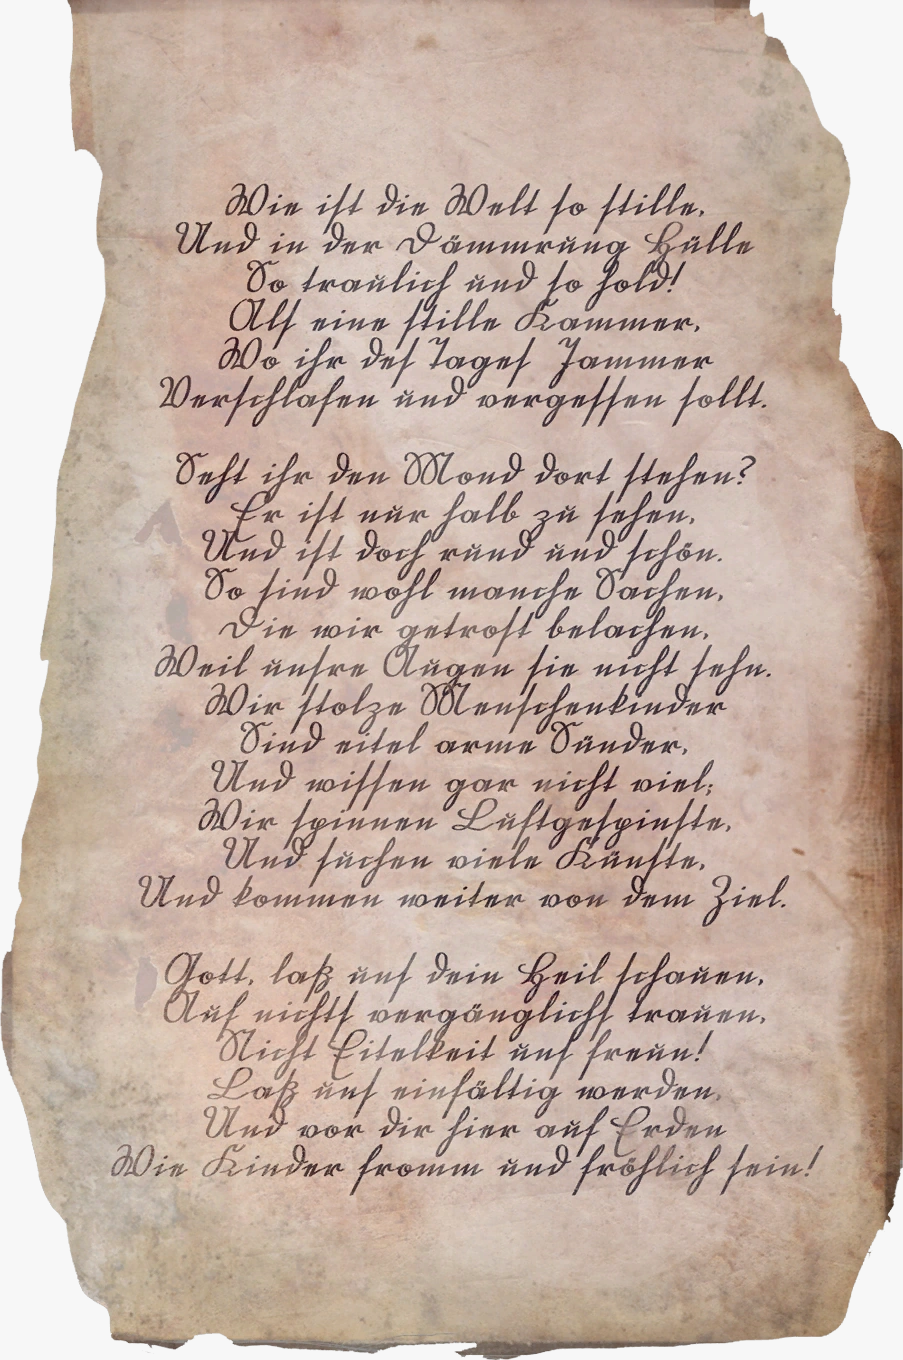 Wie ist die Welt so stille,
Und in der Dämmrung Hülle
So traulich und so hold!
Als eine stille Kammer,
Wo ihr des Tages Jammer
Verschlafen und vergessen sollt.

Seht ihr den Mond dort stehen?
Er ist nur halb zu sehen,
Und ist doch rund und schön.
So sind wohl manche Sachen,
Die wir getrost belachen,
Weil unsre Augen sie nicht sehn.
Wir stolze Menschenkinder
Sind eitel arme Sünder,
Und wissen gar nicht viel;
Wir spinnen Luftgespinste,
Und suchen viele Künste,
Und kommen weiter von dem Ziel.

Gott, laß uns dein Heil schauen,
Auf nichts vergänglichs trauen,
Nicht Eitelkeit uns freun!
Laß uns einfältig werden,
Und vor dir hier auf Erden
Wie Kinder fromm und fröhlich sein!